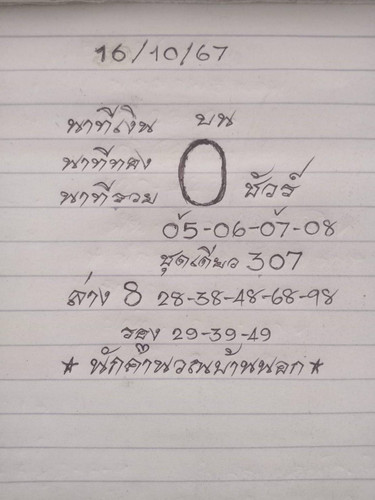 16/10/67
นาทีเงิน บน
นาทีทอง 0 ชัวร์
นาทีรวย
05-06-07-08
ชุดเดียว 307
ล่าง 8 28-38-48-68-98
รอง 29-39-49
★ นักคำนวณบ้านนอก ★